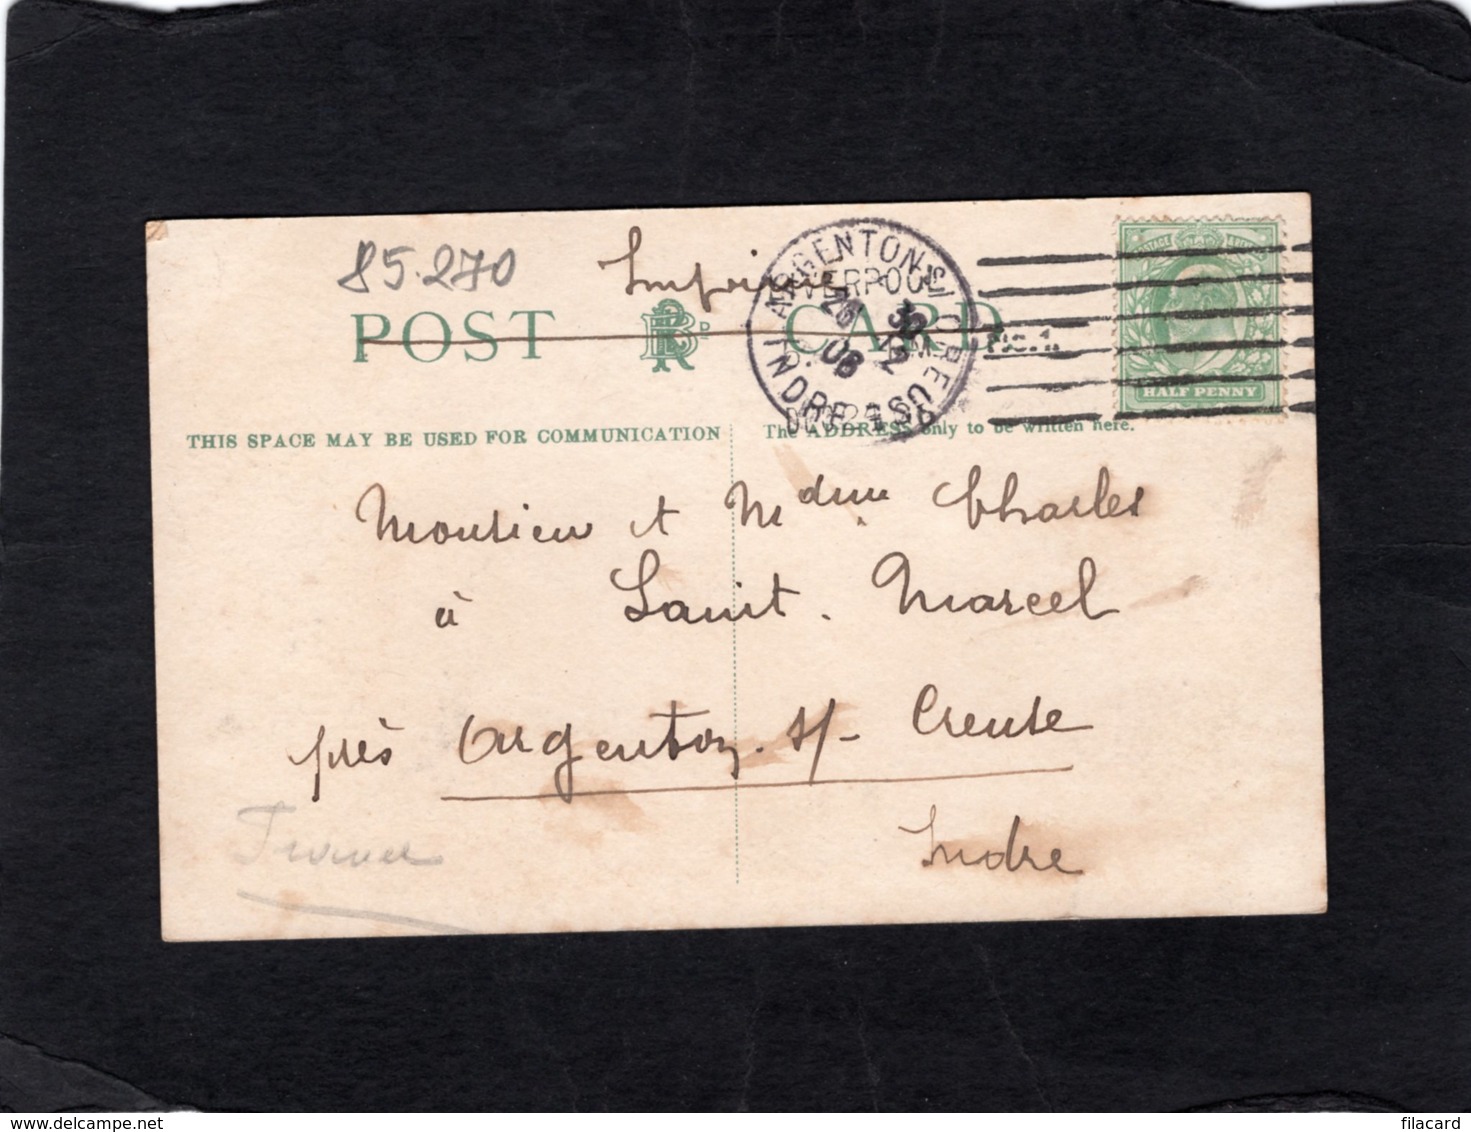 85.270
Imprimé
POST CARD
ARGENTON-S-CREUSE
INDRE
LIVERPOOL
No. 1
POSTAGE REVENUE
HALF PENNY
THIS SPACE MAY BE USED FOR COMMUNICATION
The ADDRESS only to be written here.
Monsieur et Mdme Charles
à Saint. Marcel
près Argenton. s/- Creuse
Indre
France
filacard